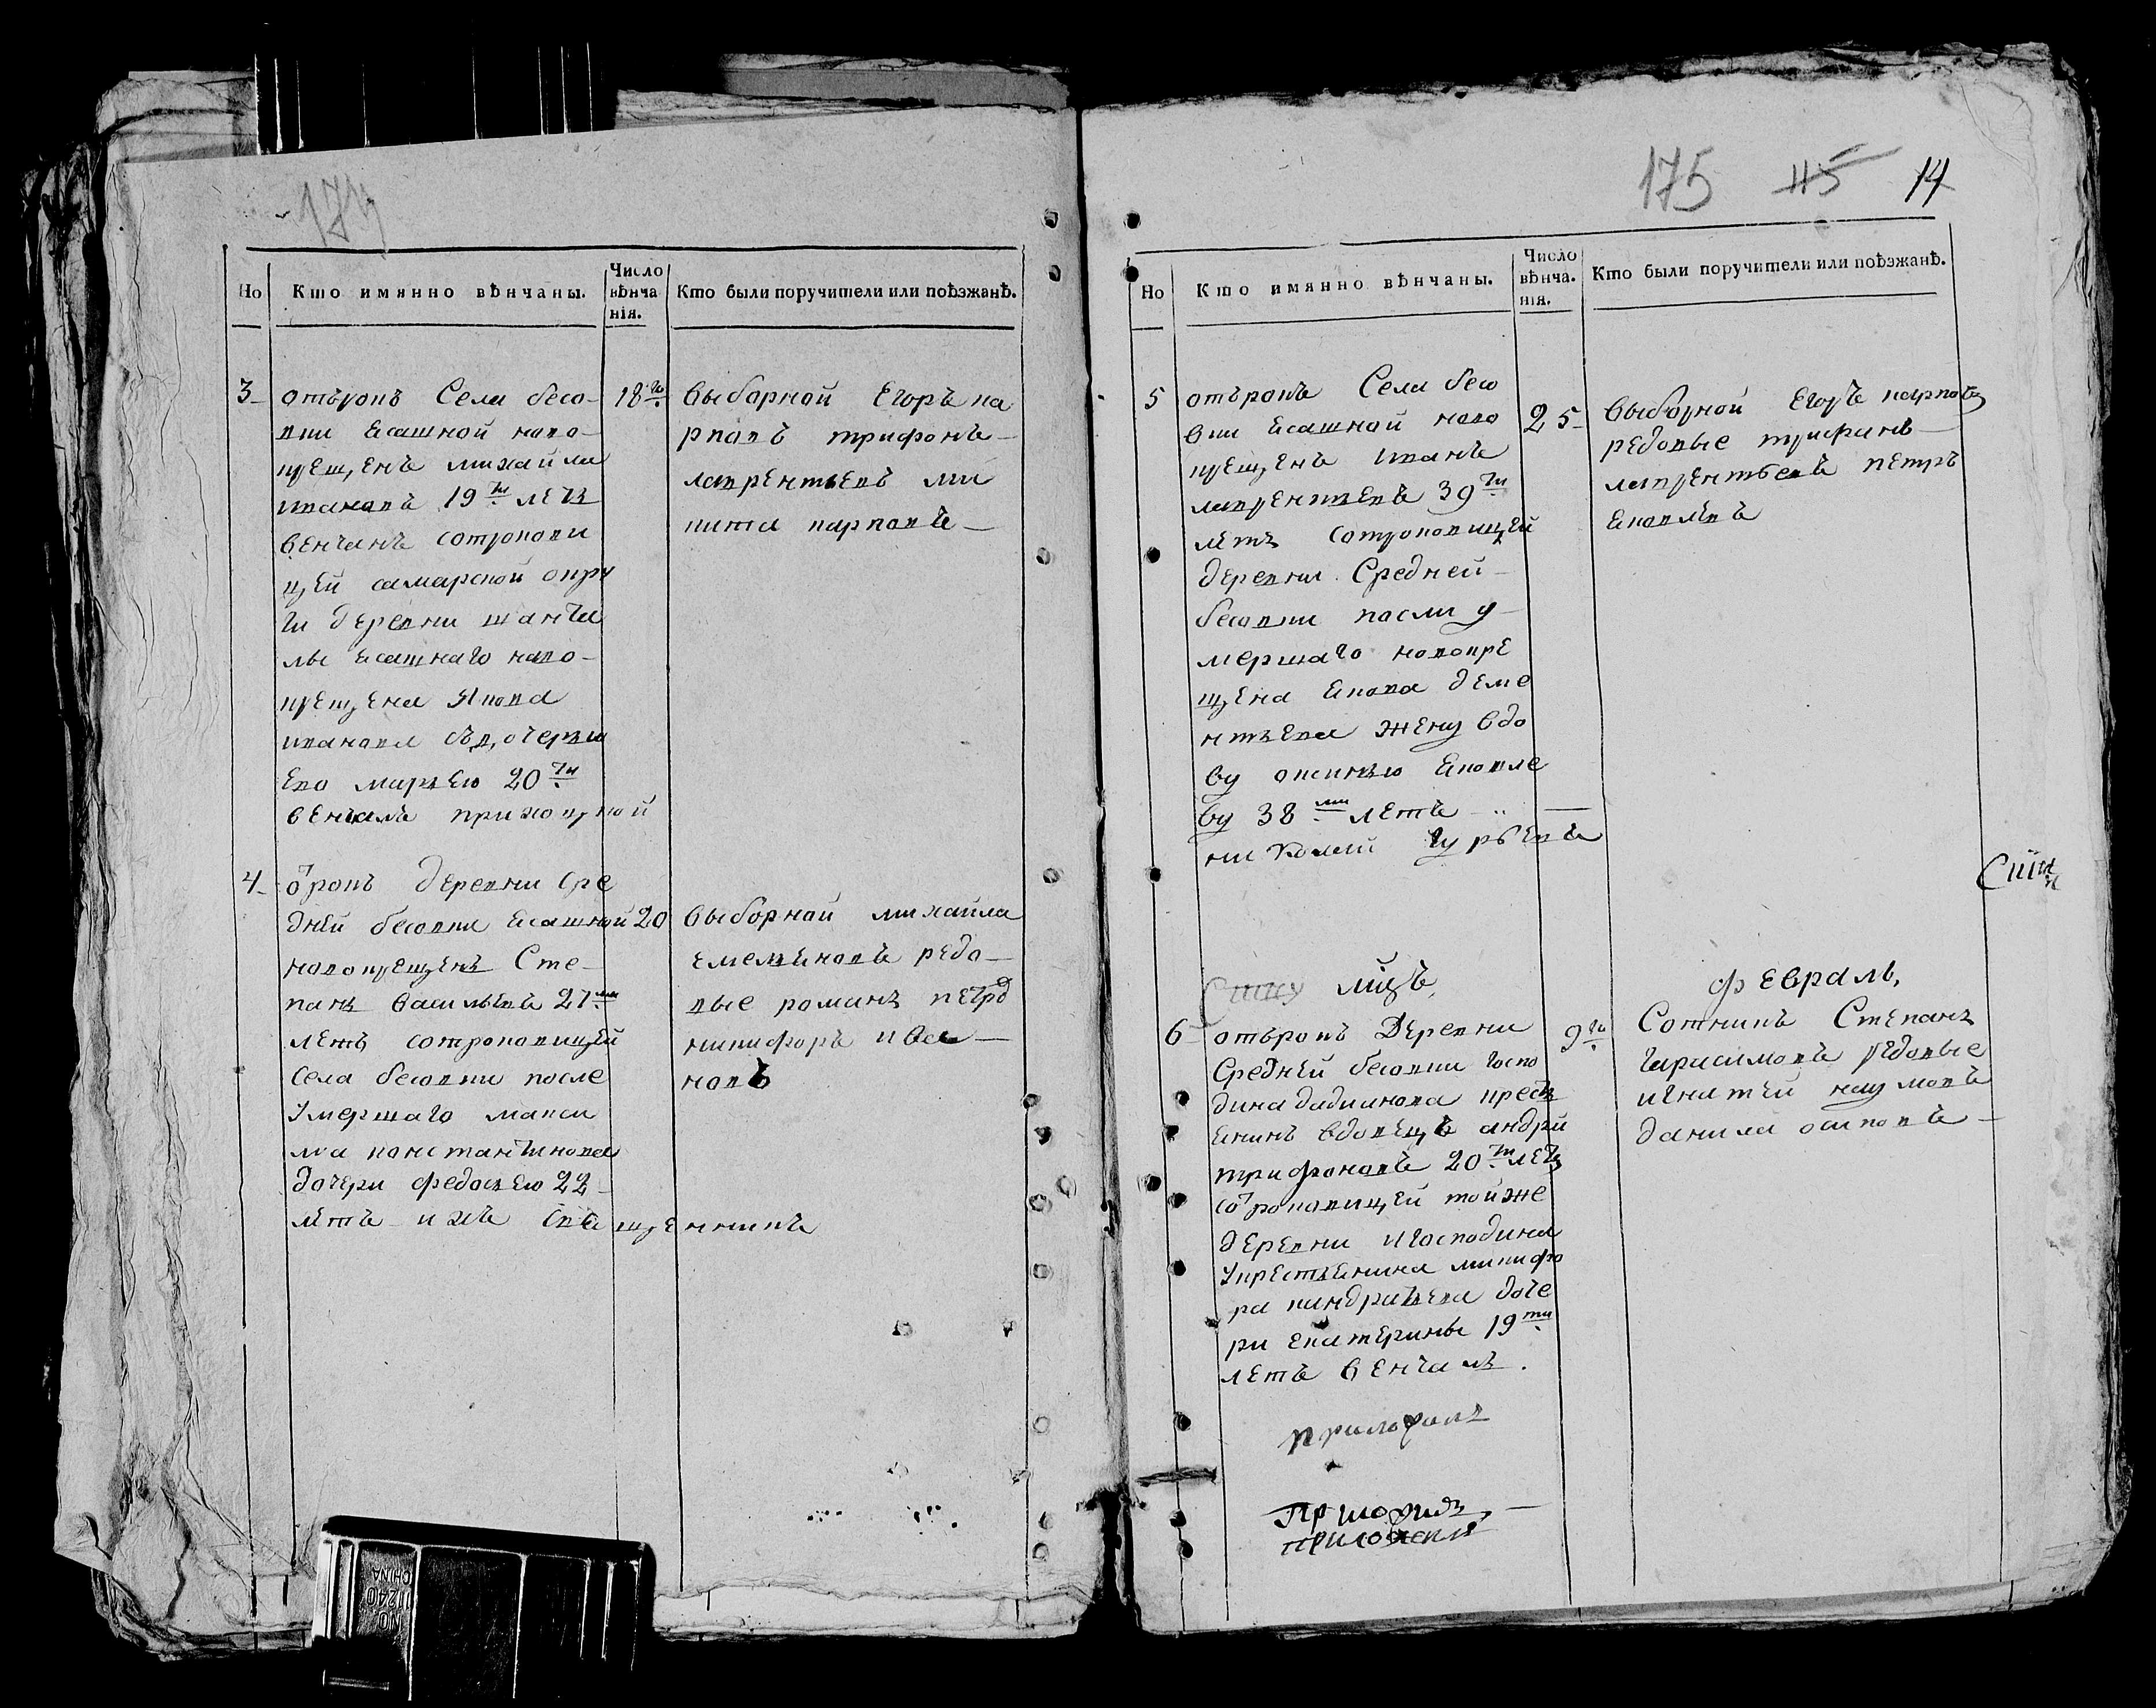 174
Но
Кто имянно вѣнчаны.
Число
вѣнча
нія.
Кто были поручители или поѣзжанѣ.
3
отърокъ Села бесо-
вки Ясашной ново-
крещенъ михайла
ивановъ 19ти летъ
венчанъ сотрокови
цей самарской окру
ги деревни шантa
лы ясашнаго ново-
крещена Якова
иванова съдочерью
ево марьею 20ти
венчалъ приходской
18го
выборной Егоръ ка
рповъ трифонъ
лаврентьевъ ни
кита карповъ
4
отрокъ деревни сре
дней бесовки ясашной
новокрещенъ Сте-
панъ васильевъ 21
летъ сотроковицей
села бесовки после
умершаго макси
ма константинова
дочери федосьею 22
летъ ихъ священникъ
20
выборной михайла
емельяновъ редо-
вые романъ петро
никифоръ ива
новъ
175 115 14
Но
Кто имянно вѣнчаны.
Число
вѣнча.
нія.
Кто были поручители или поѣзжанѣ.
5
отърокъ Села бесо
вки ясашной ново
крещенъ иванъ
лаврентьевъ 39ти
летъ сотроковицей
деревни Средней
бесовки посли у-
мершаго новокре
щена якова деме
нтьева жену вдо
ву оксинью яковле
ву 38ми летъ
николай гурьевъ
25
выборной Егоръ карповъ
редовые трифанъ
лаврентьевъ петръ
яковлевъ
февраль
6
отърокъ Деревни
Средней бесовки госпо
дина дадианова крестъ
янинъ вдовецъ андрй
трифоновъ 20ти летъ
сотроковицей тойже
деревни игосподина
укрестьянина никифо
ра кондратьева доче
ри екатерины 19ти
летъ венчалъ.
9го
Сотникъ Степанъ
гарасимовъ редовые
игнатей наумовъ
данила осиповъ